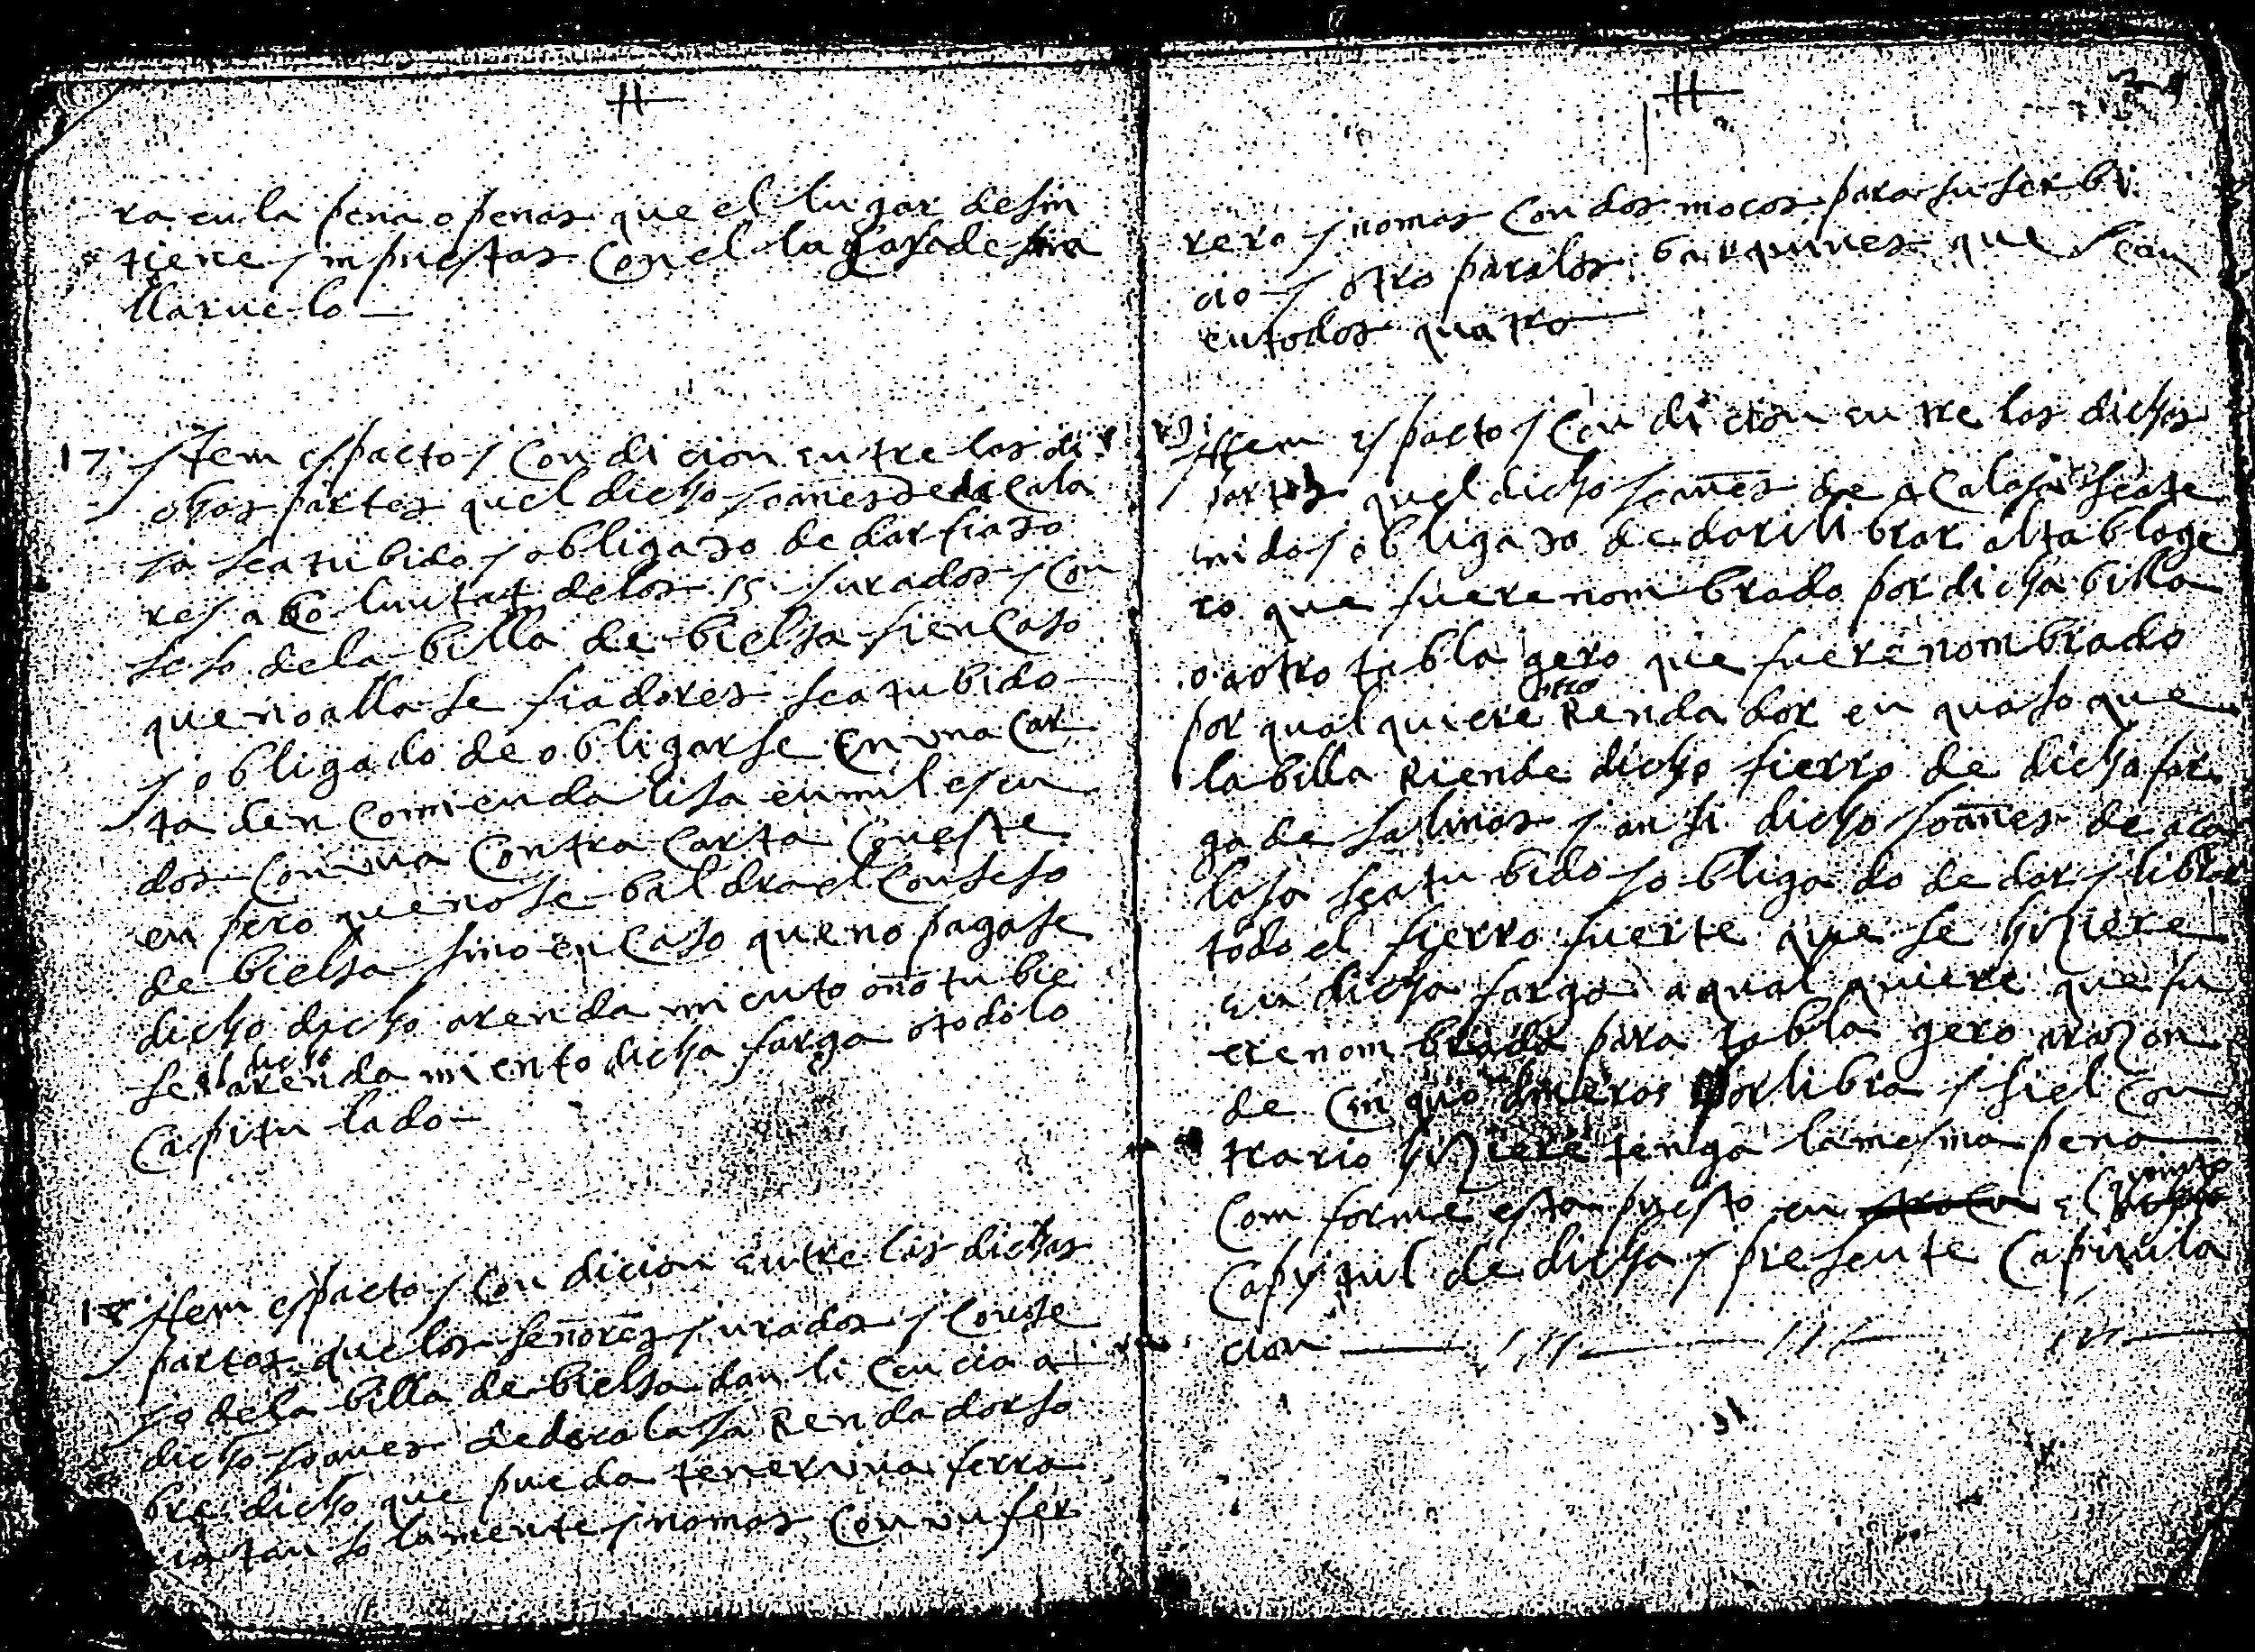 ra en la pena o penas que el lugar de sin
tiene ynpuestas con el lugar de sina
llaruelo
17 ytem es pacto y condicion entre las di
chas partes quel dicho joanes de acala
sa sea tubido y obligado de dar fiado
res a boluntat delos ss jurados y con
sejo dela billa de bielsa si en caso
que no allase fiadores sea tubido
y obligado de obligarse en una car
ta den comienda lisa en mil escu
dos con una contra carta con este
en pero que no se baldra el consejo
de bielsa sino en caso que no pagase
dicho dicho arendamiento o no tubie
se el dicho arendamiento dicha farga o todo lo
capitulado
18 ytem es pacto y condicion entre las dichas
partes que los señores jurados y conse
jo dela billa de bielsa dan licencia a
dicho joanes de acalasa Rendador so
bre dicho que pueda tener una ferre
ria tan solamente y nomas con un fer
rero y nomas con dos moços para su serbi
cio y otro para los barquines que sean
en todos quatro
19 ytem es pacto y condicion entre las dichas
partes quel dicho joanes de acalasa sea te
nido y obligado de dar i librar al tablage
ro que fuere nombrado por dicha billa
o a otro tablagero que fuere nombrado
por qualquiere otro Rendador en quaso que
la billa Riende dicho fierro de dicha far
ga de salinas y ansi dicho joanes de aca
lasa sea tubido y obligado de dar y librar
todo el fierro fuerte que se hiziere
en dicha farga a qual quiere que fu
ere nombrado para tablagero a razon
de cinquo dineros por libra y si el con
trario hiziere tenga la mesma pena
comforme esta puesto en el quinto
capytul de dicha y presente capitula
cion